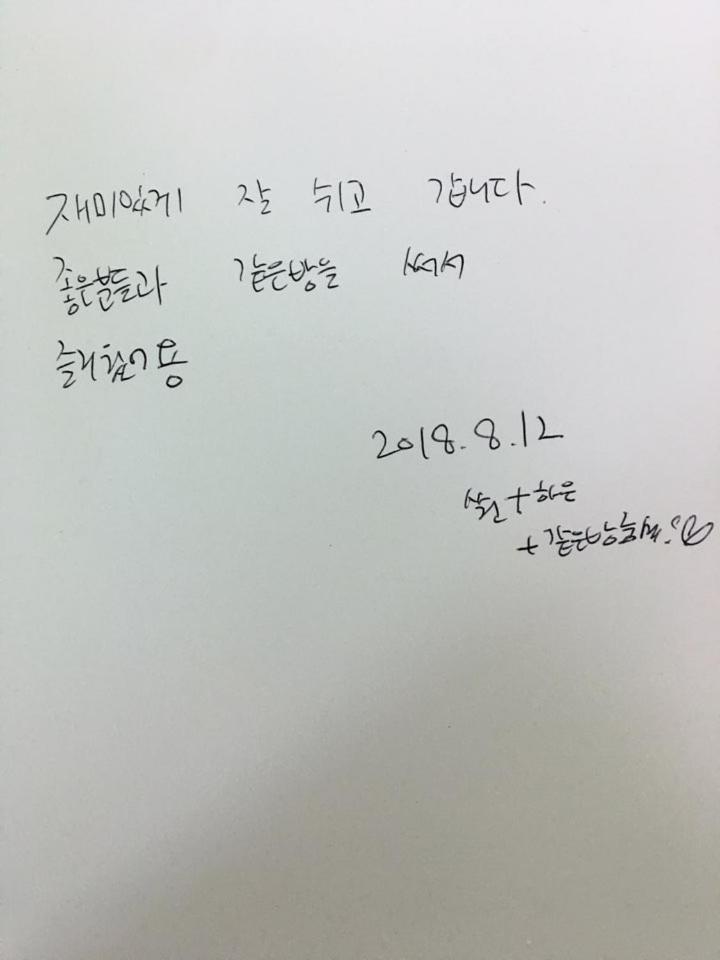 재미있게 잘 쉬고 갑니다.
좋은분들과 같은방을 써서
2018.8.12
+하은
+같은방